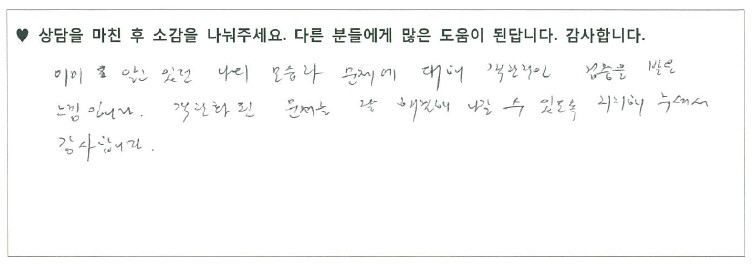 ♥ 상담을 마친 후 소감을 나눠주세요. 다른 분들에게 많은 도움이 된답니다. 감사합니다.
이미 알고 있던 나의 모습과 문제에 대해 객관적인 검증을 받은
느낌입니다. 객관화된 문제를 잘 해결해 나갈 수 있도록 지지해 주셔서
감사합니다.